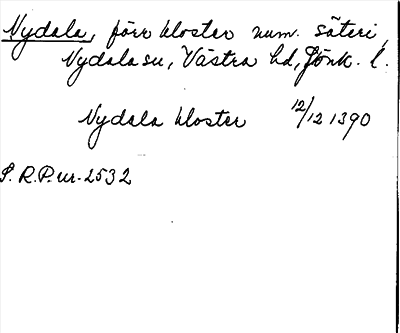 Nydala, förr kloster num. säteri,
Nydala su, Västra hd, Jönk. l.
Nydala kloster 12/12 1390
S. R.P. nr. 2532